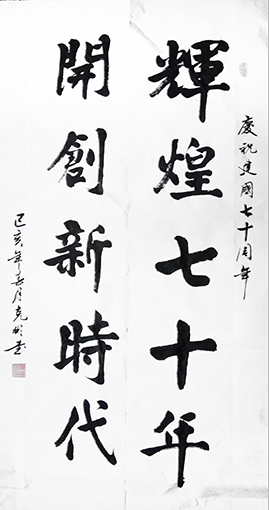 慶祝建國七十周年
輝煌七十年
開創新時代
己亥年春月克明書